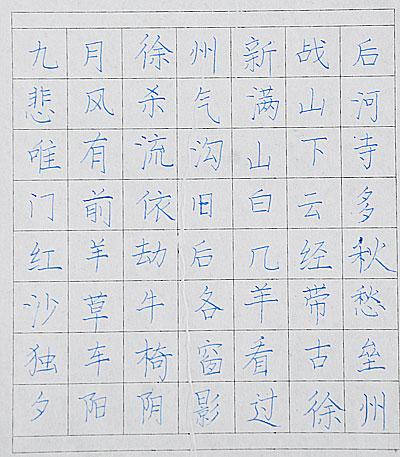 九月徐州新战后
悲风杀气满山河
唯有流沟山下寺
门前依旧白云多
红羊劫后几经秋
沙草牛各羊带愁
独车椅窗看古垒
夕阳阴影过徐州